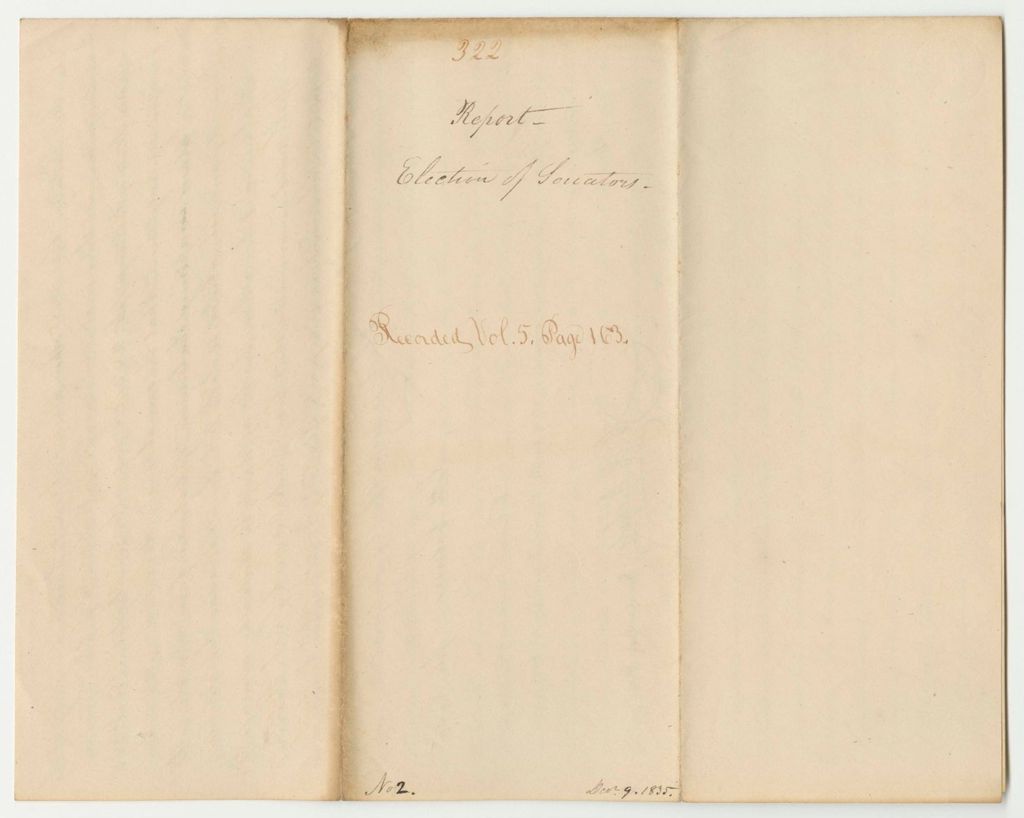 322
Report-
Election of Senators-
Recorded, Vol. 5. Page 163.
No 2. Decr. 9. 1835.